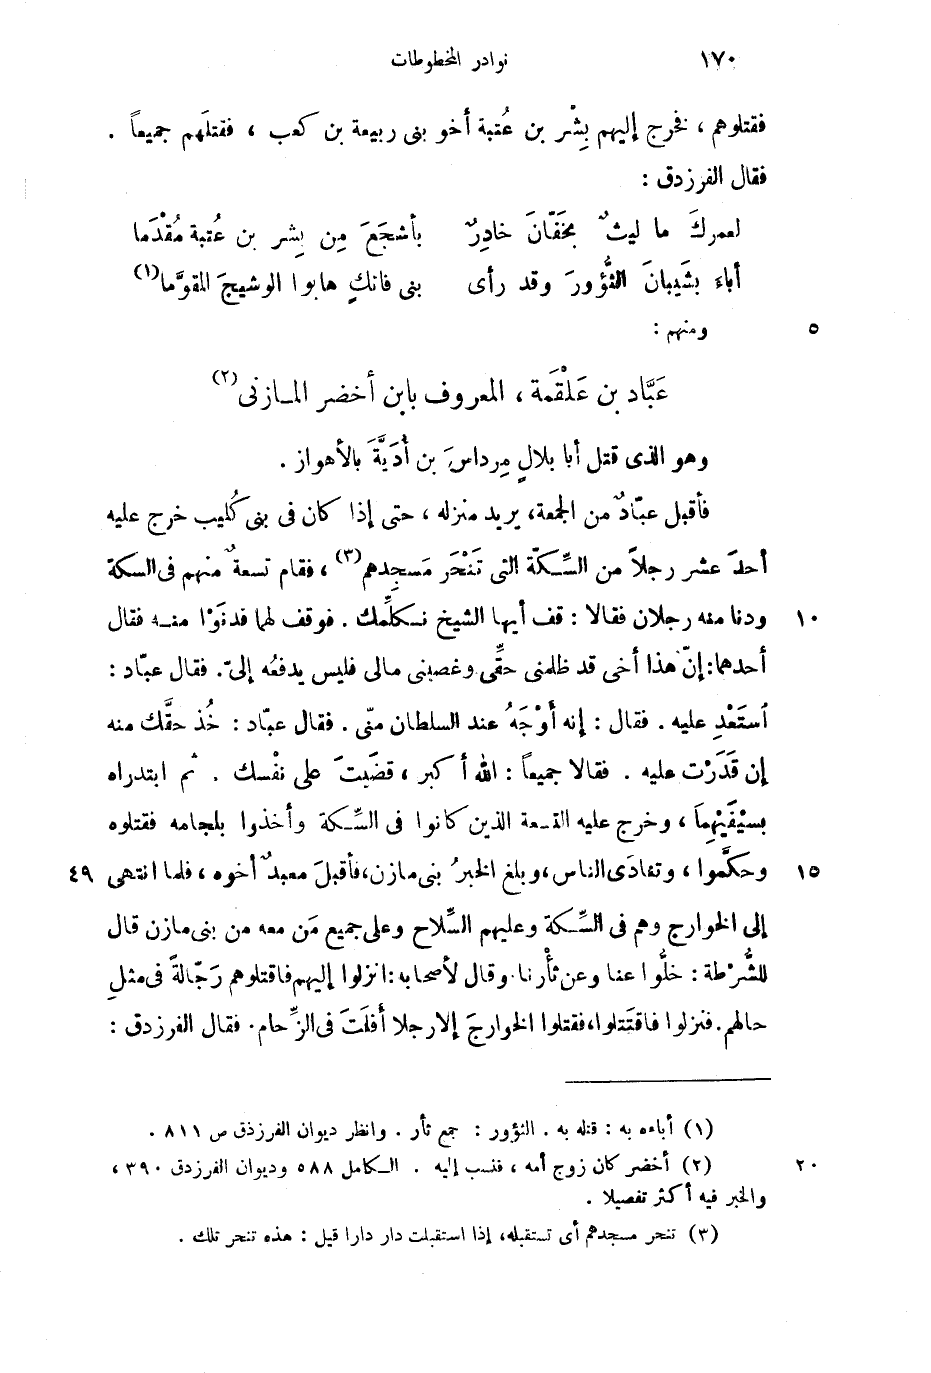 ١٧٠ نوادر المخطوطات
فقتلوهم ، فخرج إليهم بِشْر بن عُتبة أخو بنى ربيعة بن كعب ، فقتلَهم جميعاً .
فقال الفرزدق :
لعمركَ ما ليثٌ بخَفّانَ خادِرٌ بأشجَعَ مِن بِشر بن عُتبة مُقْدَما
أباءَ بشَيبانَ الثُّؤورَ وقد رأى بنى فاتكٍ هابوا الوشيجَ المقوَّما(١)
ومنهم : ٥
عَبَّاد بن عَلْقَمة ، المعروف بابن أخضر المـازنى(٢)
وهو الذى قتل أبا بلالٍ مِرداسَ بن أُدَيَّةَ بالأهواز .
فأقبل عبّادٌ من الجمعة، يريد منزله ، حتى إذا كان فى بنى كُليب خرج عليه
أحدَ عشر رجلاً من السِّكّة التى تَنْحَر مَسجِدهم(٣) ، فقام تسعةٌ منهم فى السكة
ودنا منه رجلان فقالا : قف أيها الشيخ نـكلِّمك . فوقف لهما فدنَوْا منـه فقال ١٠
أحدهما: إنّ هذا أخى قد ظلمنى حقِّى وغصبنى مالى فليس يدفعُه إلىّ. فقال عبّاد :
اَستَعْدِ عليه . فقال : إنه أوْجَهُ عند السلطان منّى . فقال عبّاد : خُذ حقَّك منه
إن قَدَرْت عليه . فقالا جميعاً : الله أكبر ، قضَيتَ على نفْسك . ثم ابتدراه
بسيْفَيْهِمَا ، وخرج عليه التسعة الذين كانوا فى السِّـكة وأخذوا بلجامه فقتلوه
وحكَّموا ، وتفادَى الناس، وبلغ الخبرُ بنى مازن، فأقبلَ معبدٌ أخوه ، فلما انتهى ١٥ ٤٩
إلى الخوارج وهم فى السِّـكة وعليهم السِّلاح وعلى جميع مَن معه من بنى مازن قال
للشُّرْطة : خلُّوا عنا وعن ثأْرنا. وقال لأصحابه: انزلوا إليهم فاقتلوهم رَجّالةً فى مثلِ
حالهم. فنزلوا فاقتَتلوا، فقتلوا الخوارجَ إلا رجلا أفلَتَ فى الزِّحام. فقال الفرزدق :
(١) أباءه به : قتله به . الثؤور : جمع ثأر . وانظر ديوان الفرزدق ص ٨١١ .
(٢) أخضر كان زوج أمه ، فنسب إليه . الـكامل ٥٨٨ وديوان الفرزدق ٣٩٠ ، ٢٠
والخبر فيه أكثر تفصيلا .
(٣) تنحر مسجدهم أى تستقبله، إذا استقبلت دار دارا قيل : هذه تنحر تلك .